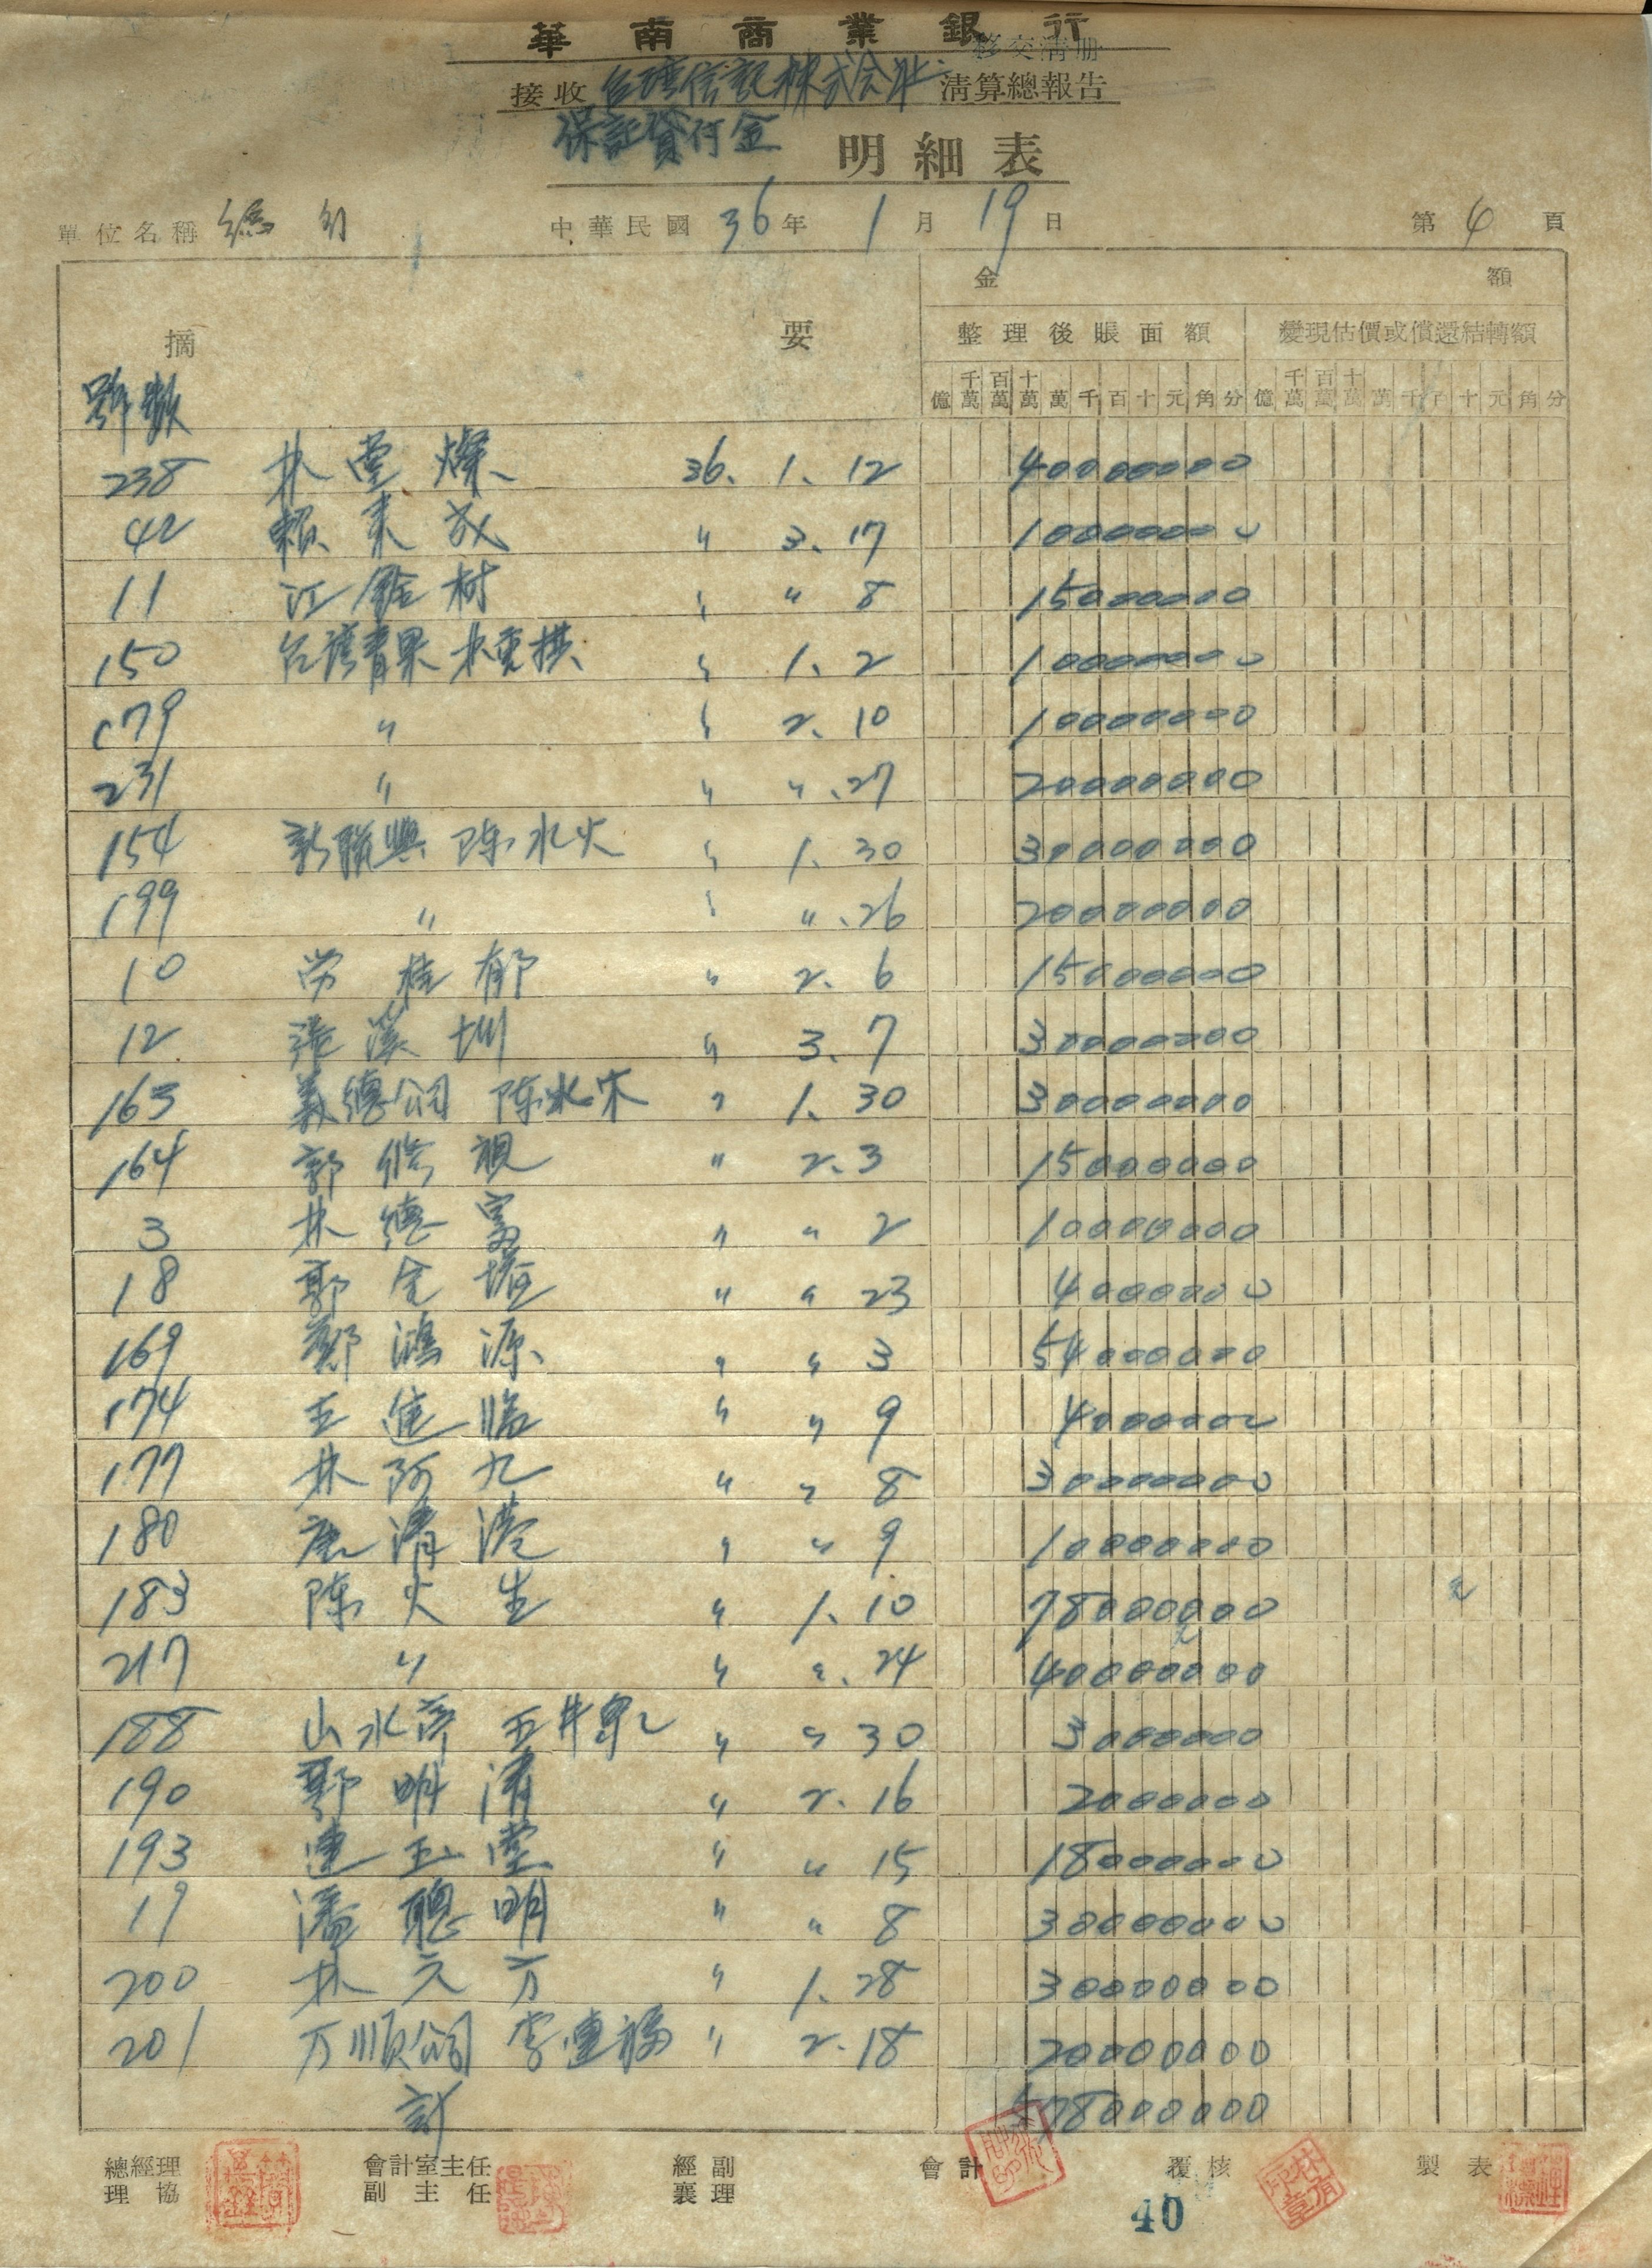 華南商業銀行
移交清册
接收 台湾信託株式会社 清算總報告
保証貸付金 明細表
單位名稱 總行 中華民國 36 年 1 月 19 日 第 4 頁
金額
摘要 整理後賬面額 變現估價或償還結轉額
億 千萬 百萬 十萬 萬 千 百 十 元 角 分 億 千萬 百萬 十萬 萬 千 百 十 元 角 分
號數
238 林 堂 燦 36. 1. 12 40000000
42 賴 来 成 〃 3. 17 10000000
11 江 村 〃 〃 8 15000000
150 台湾青果 林 〃 1. 2 10000000
179 〃 〃 2. 10 10000000
231 〃 〃 〃. 27 20000000
154 新 興 陈水火 〃 1. 30 30000000
199 〃 〃 〃. 26 20000000
10 桂 郁 〃 2. 6 15000000
12 張 溪 圳 〃 3. 7 30000000
163 義德公司 陈 〃 1. 30 30000000
164 郭 〃 2. 3 15000000
3 林 德 富 〃 〃 2 10000000
18 郭 金 〃 〃 23 4000000
169 鄭 鴻 源 〃 〃 3 54000000
174 王 進 〃 〃 9 4000000
177 林 阿 九 〃 〃 8 30000000
180 清 港 〃 〃 9 10000000
183 陈 火 生 〃 1. 10 78000000
217 〃 〃 〃. 24 40000000
188 山水亭 王井泉 〃 〃 30 3000000
190 鄭 明 清 〃 2. 16 2000000
193 連 玉 堂 〃 〃 15 18000000
19 潘 聰 明 〃 〃 8 30000000
200 林 万 〃 1. 28 30000000
201 万順公司 李連福 〃 2. 18 20000000
計 578000000
總經理 會計室主任 經副 會計 覆核 製表
理協 副主任 襄理
40